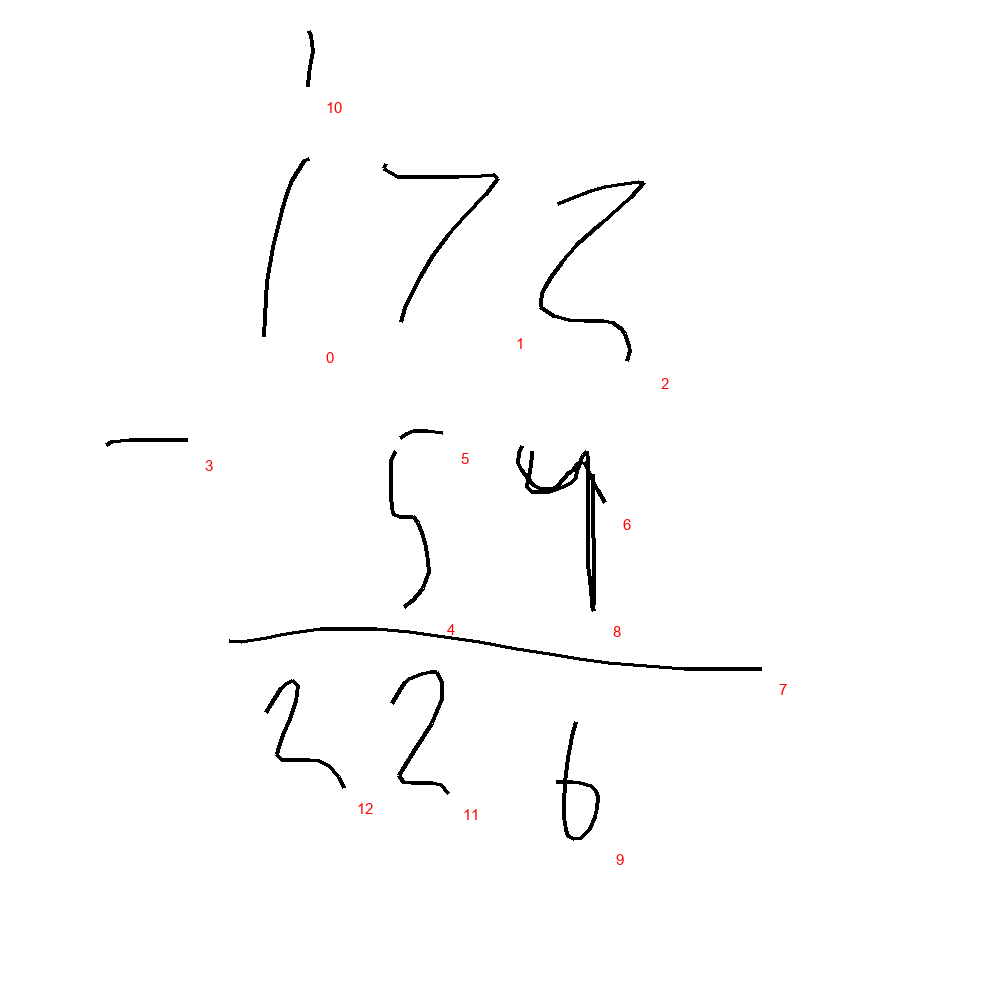 1
10
172
0 1 2
- 54
3 5
6
4 8
7
226
12 11
9